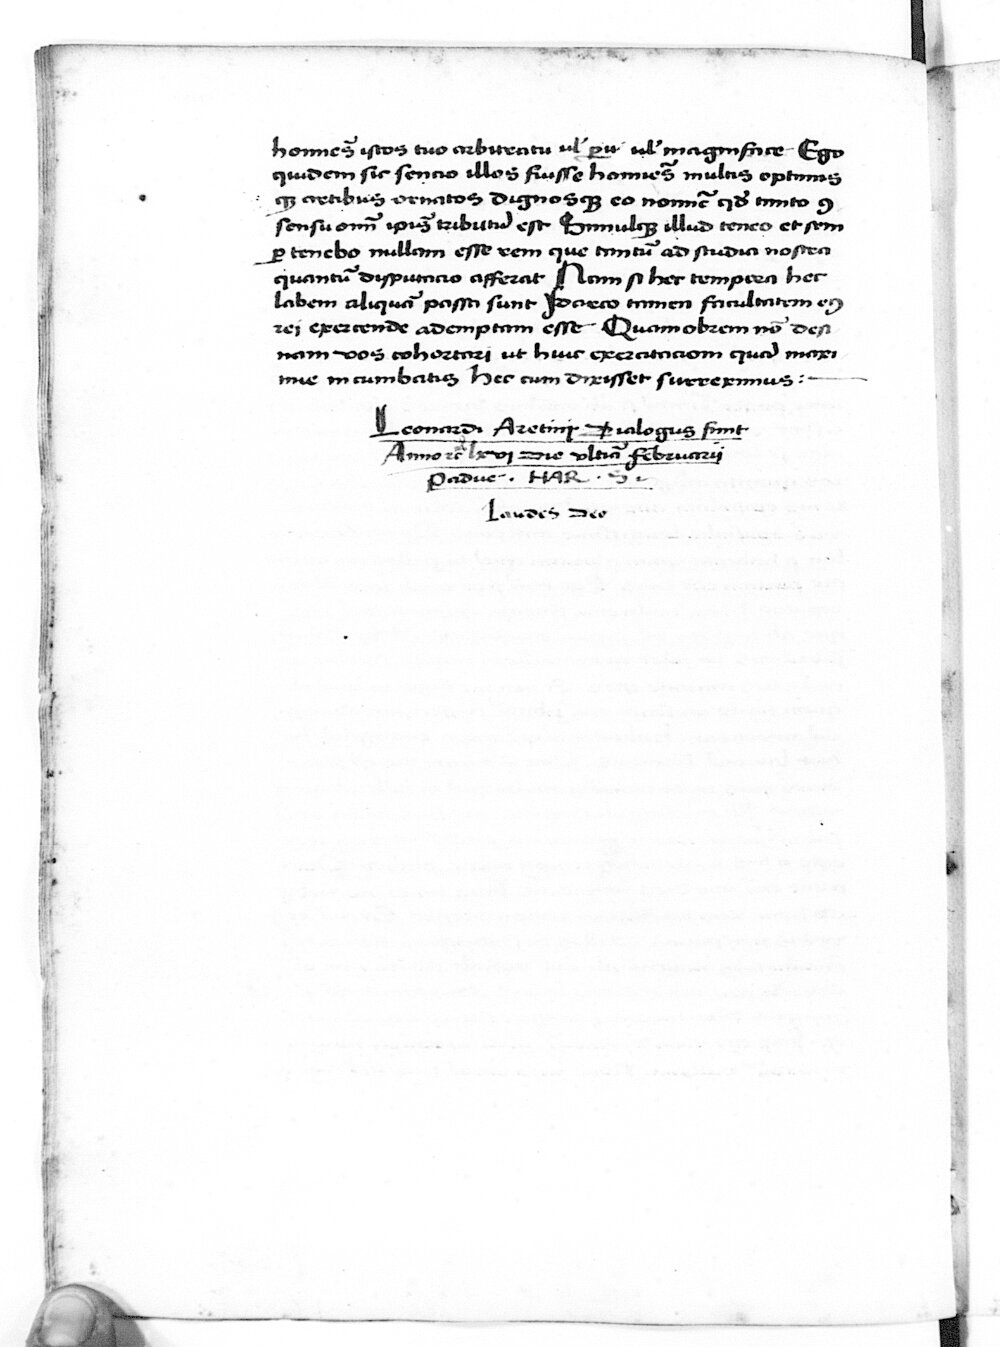 homies̄ istos tuo arbitratu ul' paru' ul' magnifice Ego
quidem sic sencio illos fuisse homies̄ multis optimis
q̨ artibus ornatos dignosq̨ eo nomīe qd' tanto 9
sensu omī ipis̄ tributū est Simulq̨ illud teneo et sem
ꝑ tenebo nullam esse rem que tantū ad studia nostra
quantū disputacio afferat Nam si hec tempora hec
labem aliquā passa sunt Parco tamen facultatem ei9
rei exercende ademptam esse Quamobrem nō desi
nam vos cohortari ut huic exercitaciom quā maxi
me incumbatis Hec cum dixisset surreximus :
Leonardi Aretini Dialogus finit
Anno lxvi Die vltia' februarii
Padue . HAR . S.
Laudes Deo